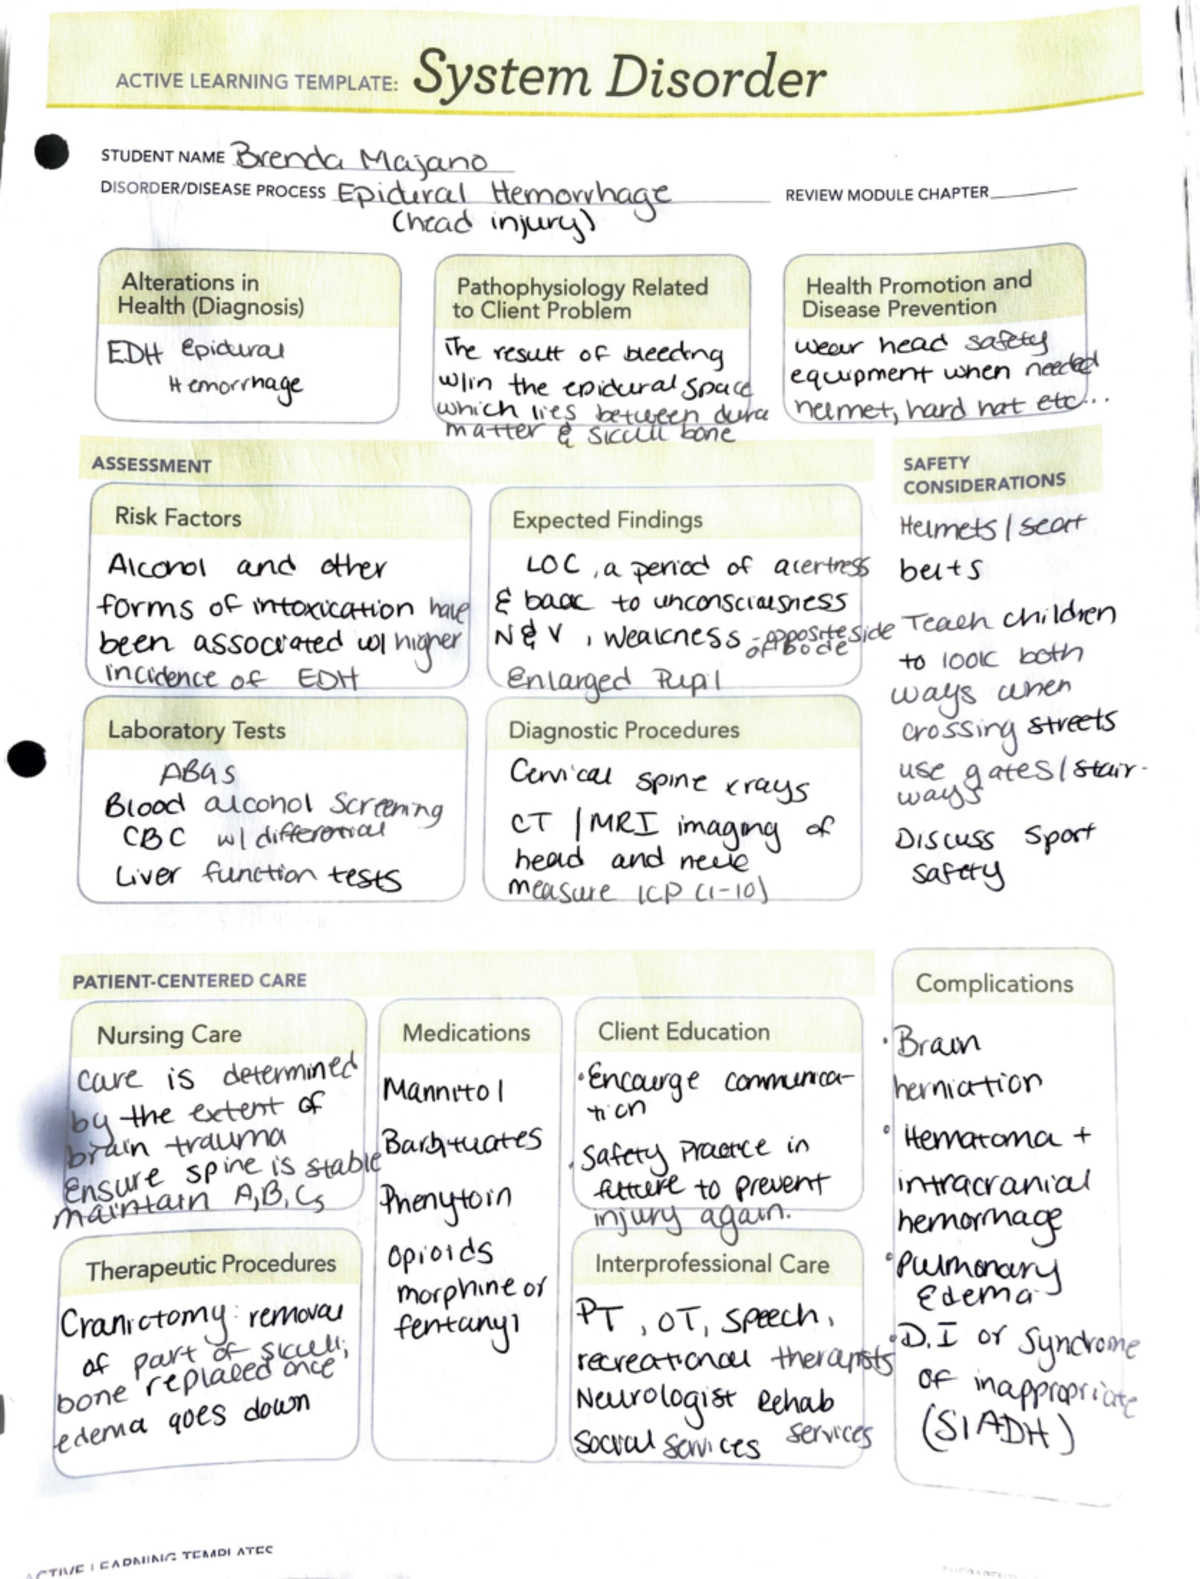 ACTIVE LEARNING TEMPLATE: System Disorder
STUDENT NAME Brenda Majano
DISORDER/DISEASE PROCESS Epidural Hemorrhage
REVIEW MODULE CHAPTER
(head injury)
Alterations in
Health (Diagnosis)
EDH Epidural
Hemorrhage
Pathophysiology Related
to Client Problem
The result of bleeding
w/in the epidural space
which lies between dura
matter & skull bone
Health Promotion and
Disease Prevention
wear head safety
equipment when needed
helmet, hard hat etc...
ASSESSMENT
Risk Factors
Alcohol and other
forms of intoxication have
been associated w/ higher
incidence of EDH
Expected Findings
LOC, a period of alertness
& back to unconsciousness
N & V, weakness - opposite side
of bode
Enlarged Pupil
Laboratory Tests
ABGs
Blood alcohol Screening
CBC w/ differential
Liver function tests
Diagnostic Procedures
Cervical spine xrays
CT / MRI imaging of
head and neck
measure ICP (1-10)
SAFETY
CONSIDERATIONS
Helmets / seat
belts
Teach children
to look both
ways when
crossing streets
use gates / stair-
ways
Discuss Sport
safety
PATIENT-CENTERED CARE
Nursing Care
care is determined
by the extent of
brain trauma
Ensure spine is stable
maintain A,B,Cs
Medications
Mannitol
Barbituates
Phenytoin
Opioids
morphine or
fentanyl
Client Education
• Encourge communica-
tion
• Safety Practice in
future to prevent
injury again.
Therapeutic Procedures
Craniectomy: removal
of part of skull;
bone replaced once
edema goes down
Interprofessional Care
PT, OT, Speech,
recreational therapists
Neurologist Rehab
services
Social services
Complications
• Brain
herniation
• Hematoma +
intracranial
hemorrhage
• Pulmonary
Edema
• D.I or Syndrome
of inappropriate
(SIADH)
ACTIVE LEARNING TEMPLATES